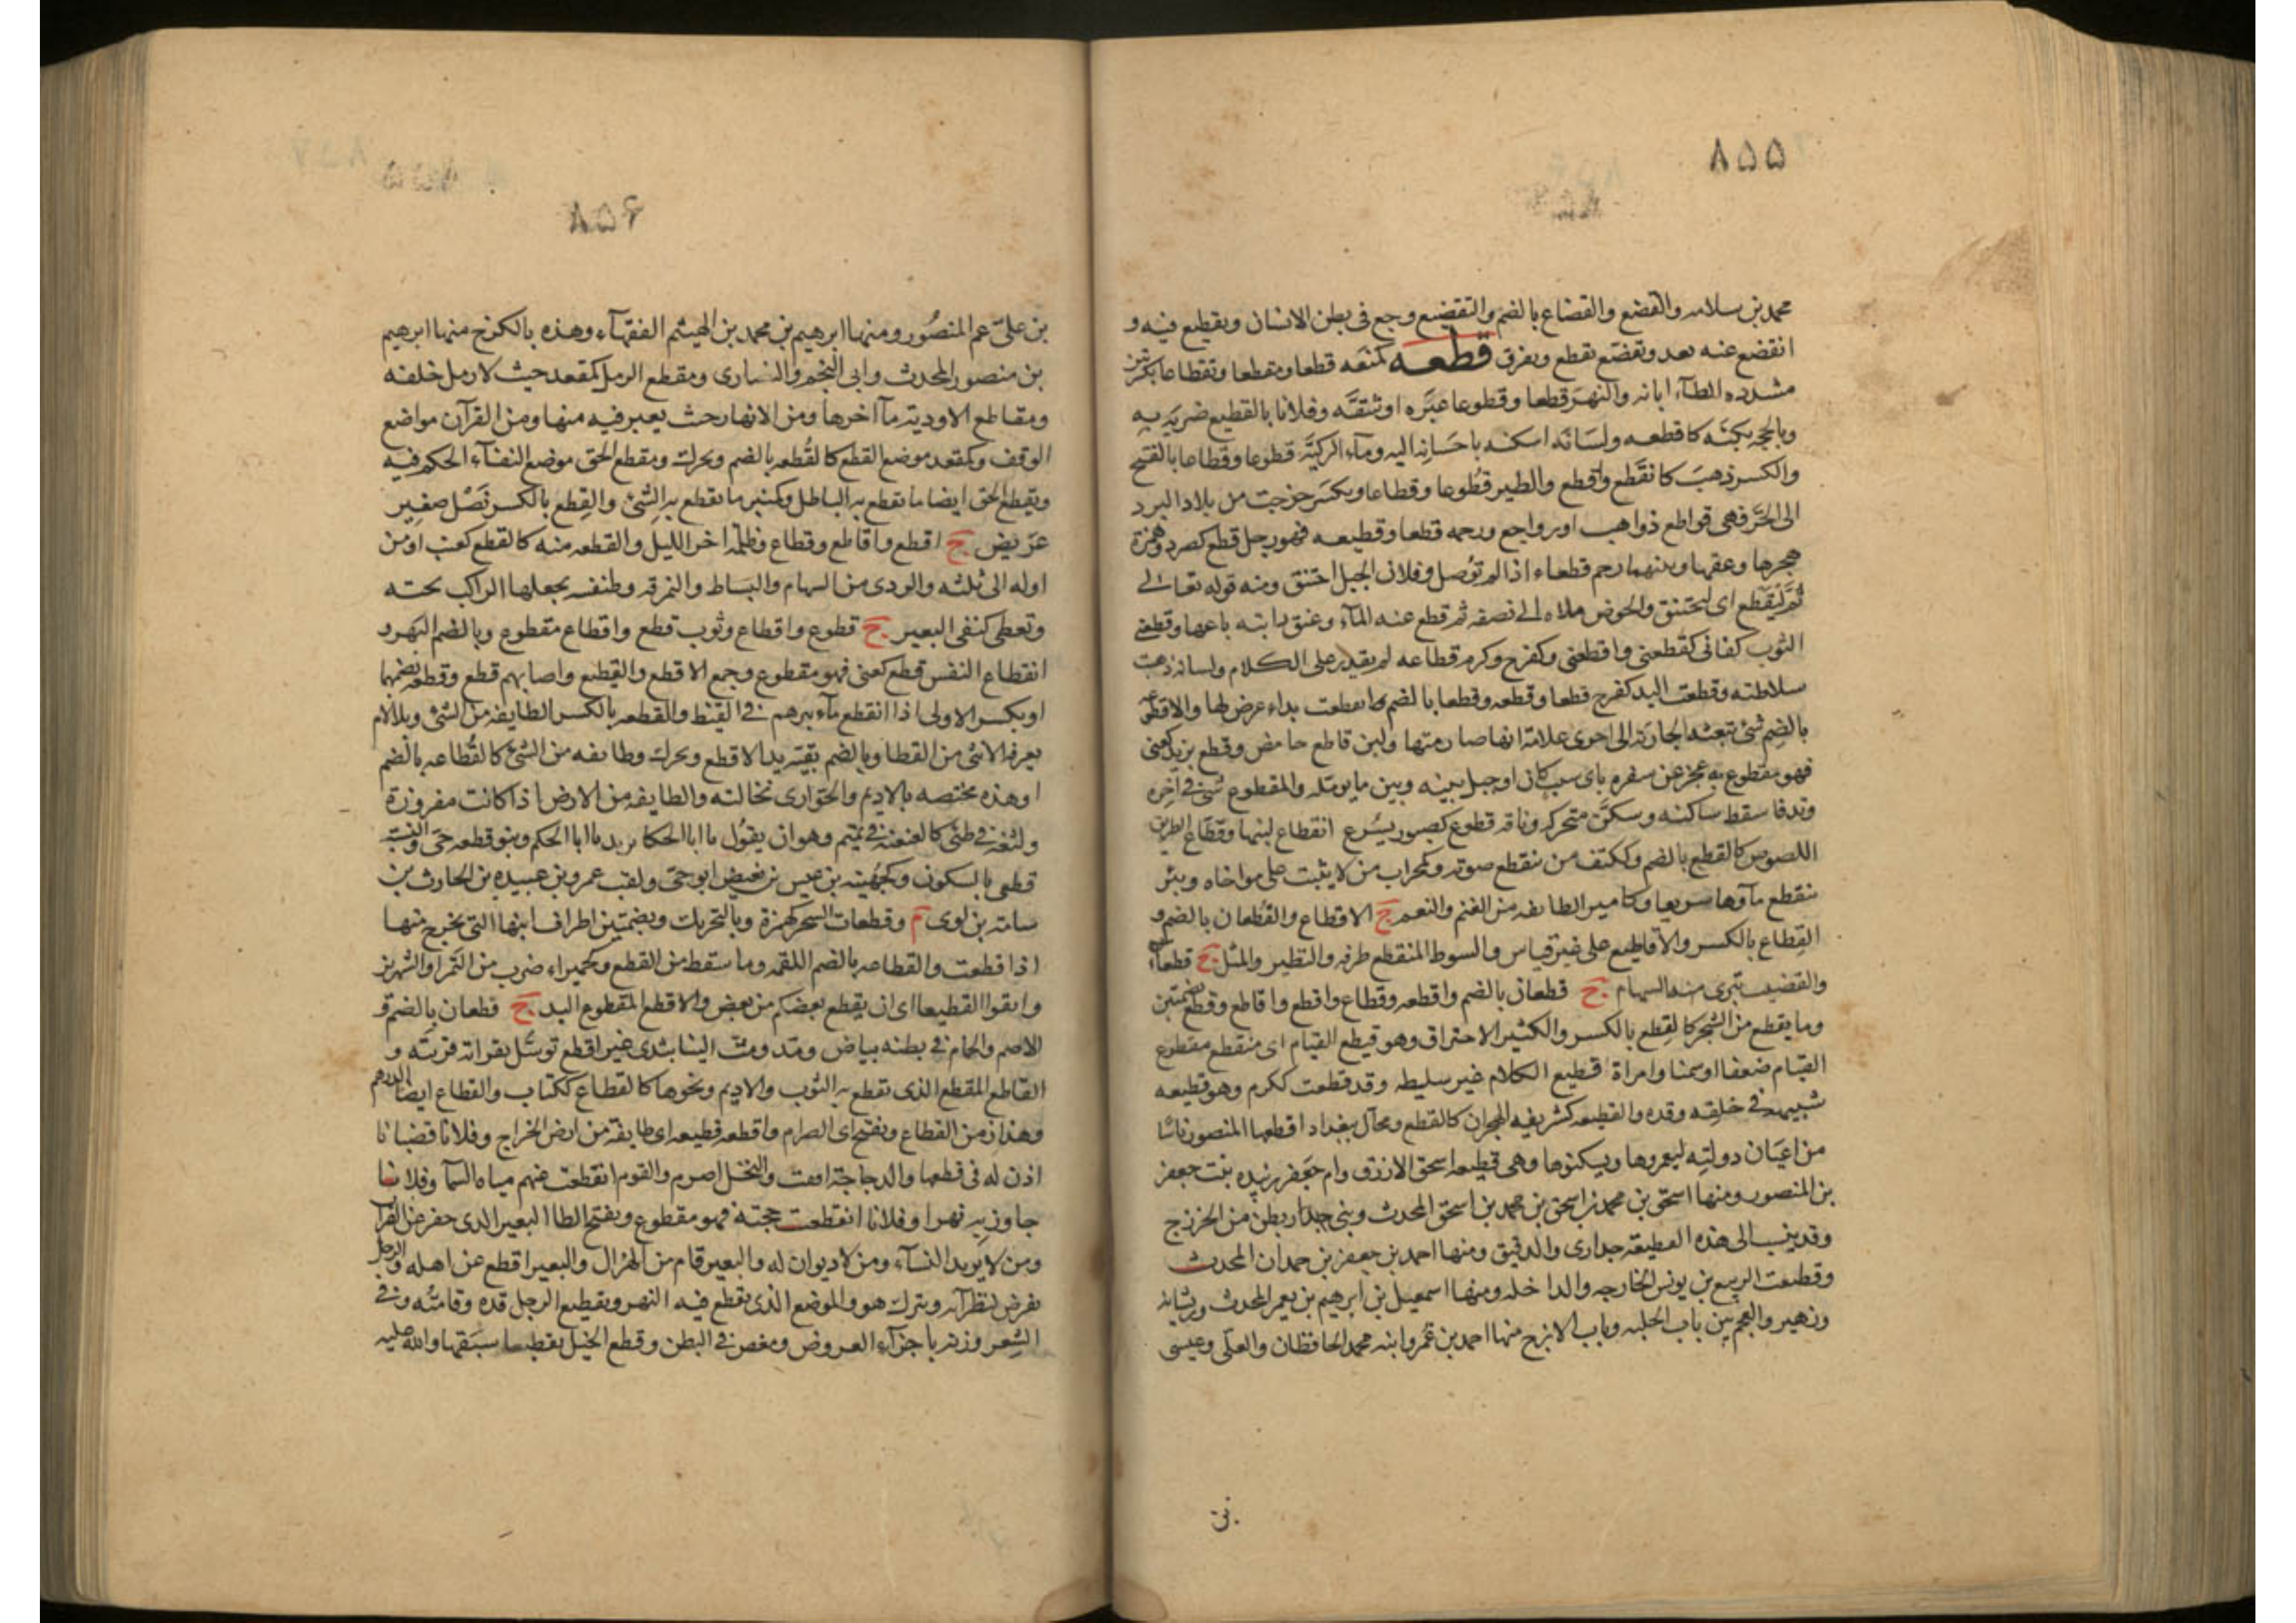 ٨٥٥
محمد بن سلامه والقضع والقضاع بالضم والتقضيع وجع فى بطن الانسان وتقطيع فيه و
انقضع عنه بعد وتقضع تقطع وتفرق قطعه كمنعه قطعا ومقطعا وتقطاعا بكسرتين
مشدده الطاء ابانه والنهر قطعا وقطوعا عبره او شقه وفلانا بالقطيع ضربه به
وبالحجه بكته كاقطعه ولسانه اسكته باحسانه اليه وماء الركية قطوعا وقطاعا بالفتح
والكسر ذهب كانقطع واقطع والطير قطوعا وقطاعا ويكسر خرجت من بلاد البرد
الى الحر فهى قواطع ذواهب او رواجع ورحمه قطعا وقطيعه فهو رجل قطع كصرد وهمزة
هجرها وعقها وبينهما رحم قطعاء اذا لم توصل وفلان الحبل اختنق ومنه قوله تعالى
ثم ليقطع اى ليختنق والحوض ملاه الى نصفه ثم قطع عنه الماء وعنق دابته باعها وقطعنى
الثوب كفانى كقطعنى واقطعنى وكفرح وكرم قطاعه لم يقدر على الكلام ولسانه ذهبت
سلاطته وقطعت اليد كفرح قطعا وقطعه وقطعا بالضم انقطعت بداء عرض لها والاقطوعه
بالضم شئ تبعثه الجاريه الى اخرى علامة انها صارمتها ولبن قاطع حامض وقطع بزيد كعنى
فهو مقطوع به عجز عن سفره باى سبب كان او حيل بينه وبين ما يومله والمقطوع شعر فى آخره
وتد فاسقط ساكنه وسكن متحركه وناقه قطوع كصبور يسرع انقطاع لبنها وقطاع الطريق
اللصوص كالقطع بالضم وككتف من ينقطع صوته وكمحراب من لا يثبت على مواخاه وبئر
ينقطع ماؤها سريعا وكامير الطايفه من الغنم والنعم ج الاقطاع والقطعان بالضم و
القطاع بالكسر والاقاطيع على غير قياس والسوط المنقطع طرفه والنظير والمثل ج قطعاء
والقضيب تبرى منه السهام ج قطعان بالضم واقطعه وقطاع واقطع واقاطع وقطع بضمتين
وما يقطع من الشجر كالقطع بالكسر والكثير الاحتراق وهو قطيع القيام اى منقطع مقطوع
القيام ضعفا او سمنا وامراة قطيع الكلام غير سليطه وقد قطعت ككرم وهو قطيعه
شبيهه فى خلقه وقده والقطيعه كشريفه الهجران كالقطع ومحال ببغداد اقطعها المنصور ناسا
من اعيان دولته ليعمروها ويسكنوها وهى قطيعه اسحق الازرق وام جعفر زبيده بنت جعفر
بن المنصور ومنها اسحق بن محمد بن اسحق بن محمد بن اسحق المحدث وبنى جدار بطن من الخزرج
وقد ينسب الى هذه القطيعه جدارى والدقيق ومنها احمد بن جعفر بن حمدان المحدث
وقطيعت الربيع بن يونس الخارجه والداخله ومنها اسمعيل بن ابرهيم بن يعمر المحدث وريشانه
وزهير والعجم بين باب الحلبه وباب الازج منها احمد بن عمر وابنه محمد الحافظان والعكى وعيسى
بن
٨٥۶
بن على عم المنصور ومنها ابرهيم بن محمد بن الهيثم الفقهاء وهذه بالكرخ منها ابرهيم
بن منصور المحدث وابى النجم والنصارى ومقطع الرمل كمقعد حيث لا رمل خلفه
ومقاطع الاودية مآاخرها ومن الانهار حيث يعبر فيه منها ومن القرآن مواضع
الوقف وكمقعد موضع القطع كالقطعه بالضم ويحرك ومقطع الحق موضع التقاء الحكم فيه
ومقطع الحق ايضا ما يقطع به الباطل وكمنبر ما يقطع به الشئ والقطع بالكسر نصل صغير
عريض ج اقطع واقاطع وقطاع وظلمة اخر الليل والقطعه منه كالقطع كعنب او من
اوله الى ثلثه والردى من السهام والبساط والنمرقه وطنفسه يجعلها الراكب تحته
وتغطى كتفى البعير ج قطوع واقطاع وثوب قطع واقطاع مقطوع وبالضم البهر و
انقطاع النفس قطع كعنى فهو مقطوع وجمع الاقطع والقطيع واصابهم قطع وقطعه بضمهما
او بكسر الاولى اذا انقطع ماء بيرهم فى القيظ والقطعه بالكسر الطايفه من الشئ وبلا لام
معرفه الانثى من القطا وبالضم بقية يد الاقطع ويحرك وطايفه من الشئ كالقطاعه بالضم
او هذه مختصه بالاديم والحوارى نخالته والطايفه من الارض اذا كانت مفروزة
ولثغه فى طئ كالعنعنه فى تميم وهو ان يقول يا ابا الحكا يريد يا ابا الحكم وبنو قطعه حى والنسبة
قطعى بالسكون وكجهينه بن عبس بن بغيض ابو حى ولقب عمرو بن عبيده بن الحارث بن
سامه بن لوى م وقطعات الشجر كهمزة وبالتحريك وبضمتين اطراف ابنها التى يخرج منها
اذا قطعت والقطاعه بالضم اللقمه وما سقط من القطع وكحميراء ضرب من التمر او الشهريز
واتقوا القطيعا اى ان ينقطع بعضكم من بعض والاقطع المقطوع اليد ج قطعان بالضم و
الاصم والحمام فى بطنه بياض ومد ومت الينا بثدى غير اقطع توسل بقرابة قريبة و
القاطع المقطع الذى يقطع به الثوب والاديم ونحوها كالقطاع ككتاب والقطاع ايضا الدرهم
وهذا زمن القطاع ويفتح اى الصرام واقطعه قطيعه اى طايفة من ارض الخراج وفلانا قضبانا
اذن له فى قطعها والدجاجة اقفت والنخل اصرم والقوم انقطعت عنهم مياه السما وفلانا
جاوز به نهرا وفلانا انقطعت حجته فهو مقطوع وبفتح الطا البعير الذى جفر عن الضراب
ومن لا يريد النساء ومن لا ديوان له والبعير قام من الهزال والبعير اقطع عن اهله والرجل
يفرض لنظرآئه ويترك هو والموضع الذى يقطع فيه النهر وتقطيع الرجل قده وقامته وفى
الشعر وزنه باجزآء العروض ومغص فى البطن وقطع الخيل تقطيعا سبقها والله عليه